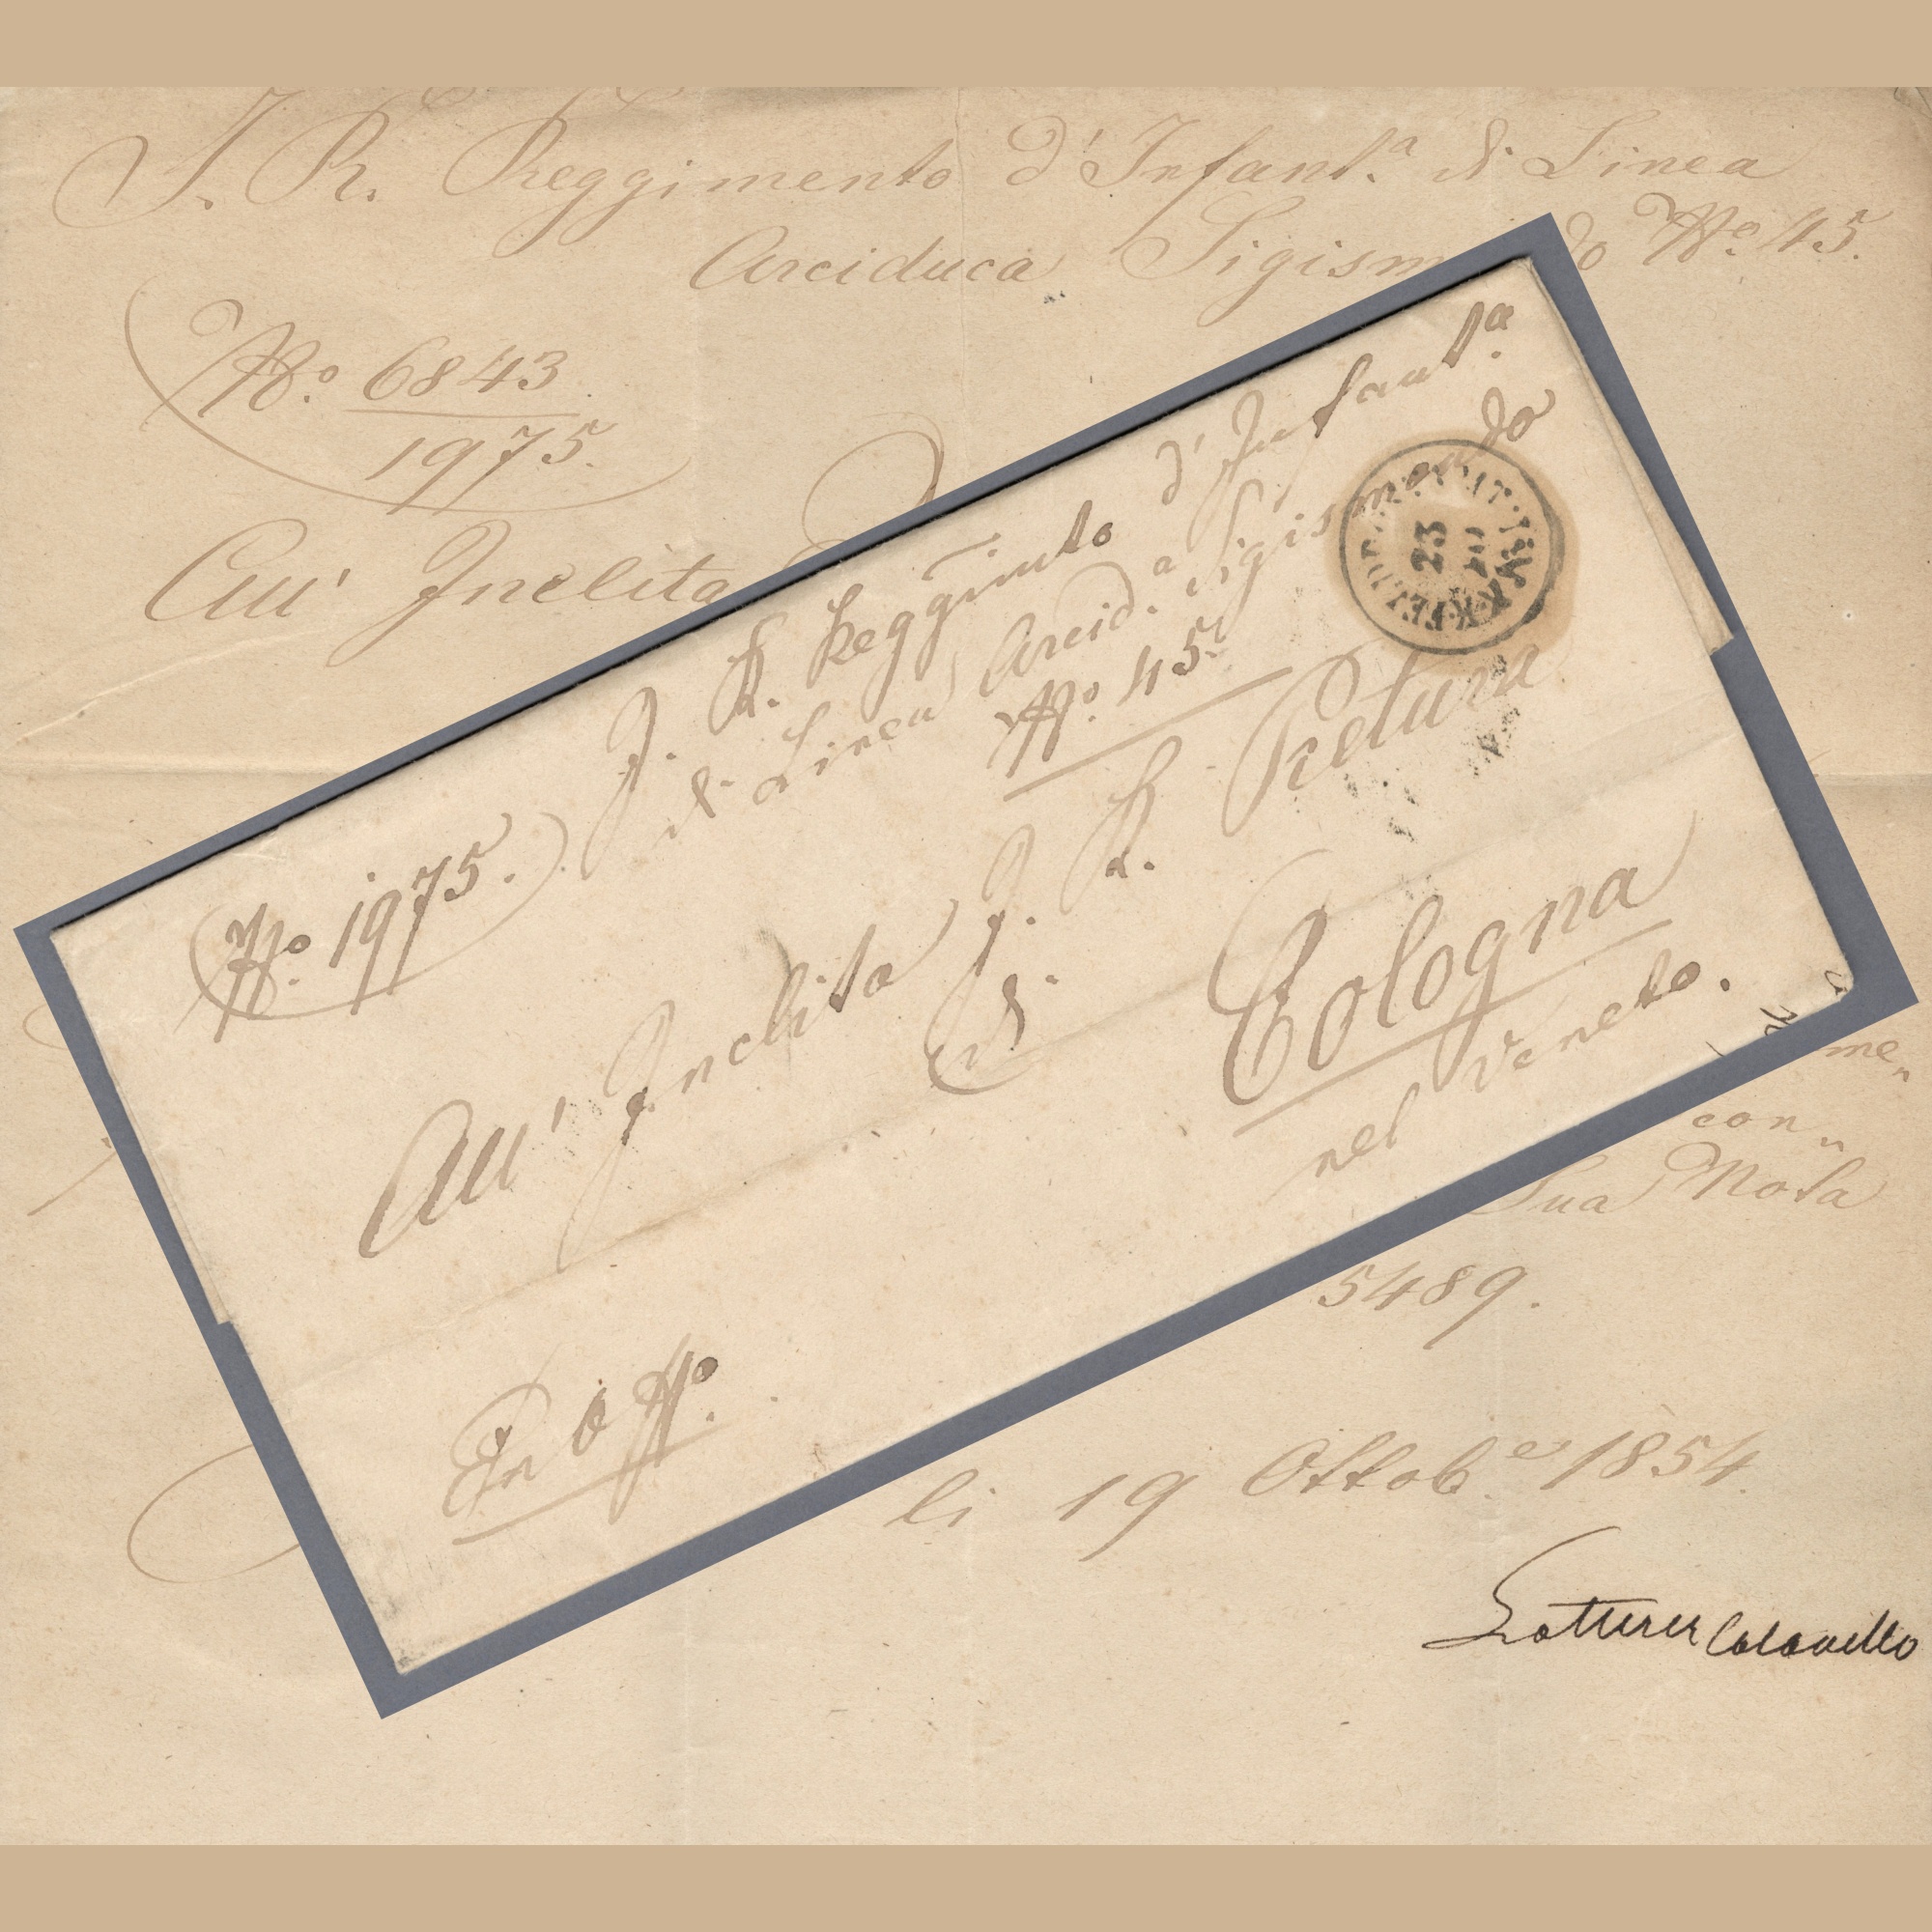 I. R. Reggimento d'Infant.ª di Linea
Arciduca Sigism do Nº 45.
Nº 6843
1975.
All' Inclita
Nº 1975.
I. R. Reggimto d'Infant.ª
di Linea Arcid.ª Sigismondo
Nº 45
23
All' Inclita I. R. Pretura
di
Cologna
nel Veneto.
Ex Offº.
me„
con„
Sua Nota
5489.
li 19 Ottob.e 1854.
Colonello